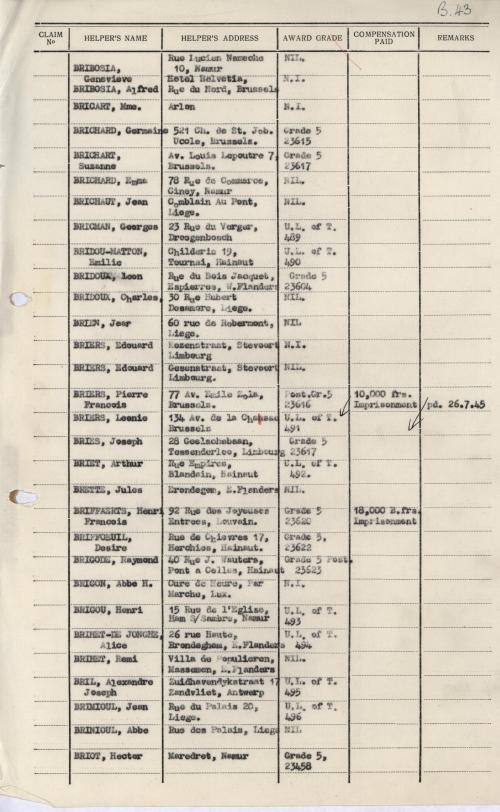 B.43
CLAIM No HELPER'S NAME HELPER'S ADDRESS AWARD GRADE COMPENSATION PAID REMARKS
Rue Lucien Nameche NIL.
BRIBOSIA, 10, Namur
Genevieve Hotel Helvetia, N.I.
BRIBOSIA, Alfred Rue du Nord, Brussels
BRICART, Mme. Arlon N.I.
BRICHARD, Germaine 521 Ch. de St. Job. Grade 5
Uccle, Brussels. 23615
BRICHART, Av. Louis Lepoutre 7, Grade 5
Suzanne Brussels. 23617
BRICHARD, Emma 78 Rue de Commerce, NIL.
Ciney, Namur
BRICHAUT, Jean Comblain Au Pont, NIL.
Liege.
BRICMAN, Georges 23 Rue du Verger, U.L. of T.
Droogenbosch 489
BRIDOU-MATTON, Childeric 19, U.L. of T.
Emilie Tournai, Hainaut 490
BRIDOUX, Leon Rue du Bois Jacquet, Grade 5
Espierres, W.Flanders 23604
BRIDOUX, Charles, 30 Rue Hubert NIL.
Desamore, Liege.
BRIEN, Jear 60 rue de Robermont, NIL
Liege.
BRIERS, Edouard Kozenstraat, Stevoort N.I.
Limbourg
BRIERS, Edouard Gezenstraat, Stevoort NIL.
Limbourg.
BRIERS, Pierre 77 Av. Emile Zola, Post.Gr.5 10,000 frs.
Francois Brussels. 23616 Imprisonment pd. 26.7.45
BRIERS, Leonie 134 Av. de la Chasse U.L. of T.
Brussels 491
BRIES, Joseph 28 Geelschebaan, Grade 5
Tessenderloo, Limbourg 23617
BRIET, Arthur Rue Empires, U.L. of T.
Blandain, Hainaut 492.
BRETTE, Jules Erondegem, E.Flanders NIL.
BRIFFAERTS, Henri 92 Rue des Joyeuses Grade 5 18,000 B.frs.
Francois Entrees, Louvain. 23620 Imprisonment
BRIFFOEUIL, Rue de Chievres 17, Grade 5,
Desire Herchies, Hainaut. 23622
BRIGODE, Raymond 40 Rue J. Wauters, Grade 5 Post.
Pont a Celles, Hainaut 23623
BRIGON, Abbe H. Cure de Heure, Par N.I.
Marche, Lux.
BRIGOU, Henri 15 Rue de l'Eglise, U.L. of T.
Ham S/Sambre, Namur 493
BRIHET-DE JONGHE, 26 rue Haute, U.L. of T.
Alice Erondeghem, E.Flanders 494
BRIHET, Remi Villa de Populieren, NIL.
Massemen, E.Flanders
BRIL, Alexandre Zuidhavendykstraat 17 U.L. of T.
Joseph Zandvliet, Antwerp 495
BRIMIOUL, Jean Rue du Palais 20, U.L. of T.
Liege. 496
BRINIOUL, Abbe Rue des Palais, Liege NIL
BRIOT, Hector Maredret, Namur Grade 5,
23458